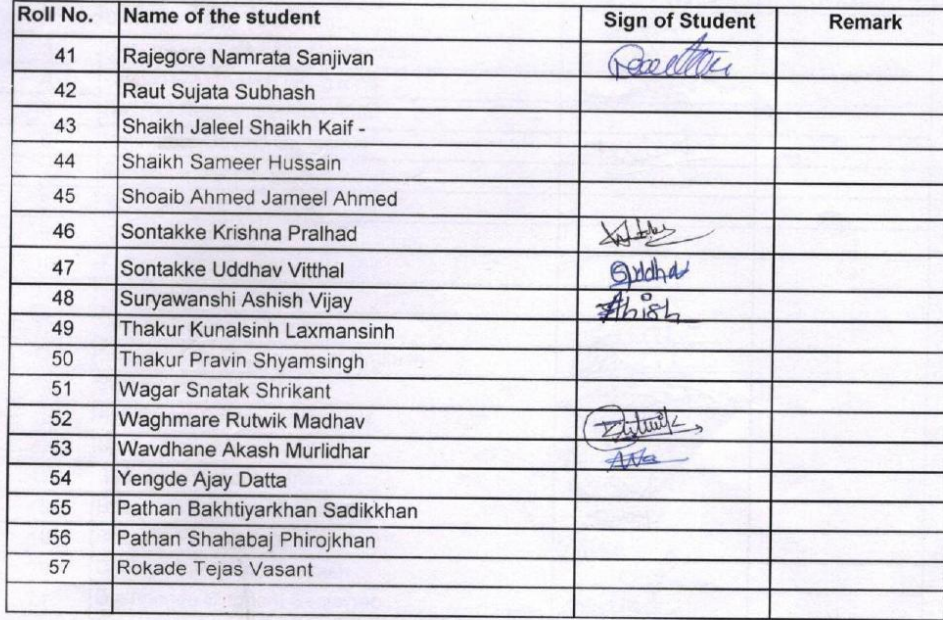 Roll No. Name of the student Sign of Student Remark
41 Rajegore Namrata Sanjivan
42 Raut Sujata Subhash
43 Shaikh Jaleel Shaikh Kaif -
44 Shaikh Sameer Hussain
45 Shoaib Ahmed Jameel Ahmed
46 Sontakke Krishna Pralhad
47 Sontakke Uddhav Vitthal Uddhav
48 Suryawanshi Ashish Vijay Ashish
49 Thakur Kunalsinh Laxmansinh
50 Thakur Pravin Shyamsingh
51 Wagar Snatak Shrikant
52 Waghmare Rutwik Madhav Rutwik
53 Wavdhane Akash Murlidhar
54 Yengde Ajay Datta
55 Pathan Bakhtiyarkhan Sadikkhan
56 Pathan Shahabaj Phirojkhan
57 Rokade Tejas Vasant